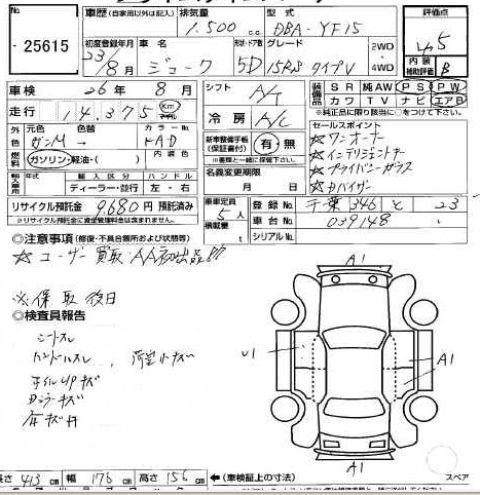 No.
25615
車歴 (自家用以外は記入)
排気量
1.500 c.c.
型式
DBA-YF15
評価点
4.5
初度登録年月
23/8月
車名
ジューク
形状・ドア数
5D
グレード
15RS タイプV
2WD
4WD
内装
補助評価
B
車検
26年 8月
走行
14.375 Km
シフト
A/T
冷房
A/C
装備品
SR 純AW PS PW
カワ TV ナビ エアB
※純正品に限り該当に○をつけて下さい。
外色
元色
ガンM→
色替
カラーNo.
KAD
内装色
燃料
ガソリン・軽油・( )
新車整備手帳
(保証書付)
有・無
※書類と一緒に保管下さい。
セールスポイント
☆ワンオーナー
☆インテリジェントキー
☆プライバシーガラス
☆Dバイザー
輸入車用
年式
輸入区分
ディーラー・並行
ハンドル
左・右
名義変更期限
月 日
リサイクル預託金 9680円 預託済み
※リサイクル預託金に資金管理料金は含まれません。
乗車定員
5人
積載量
t
登録No.
千葉 346 と 23
車台No.
039148
シリアルNo.
◎注意事項 (修復・不具合箇所および状態等)
☆ユーザー買取 AA初出品
※保取後日
◎検査員報告
シートスレ
ハンドルスレ、荷室小キズ
ホイルUPキズ
A1
U1
A1
A1
長さ 413 cm 幅 176 cm 高さ 156 cm ←(車検証上の寸法)
スペア